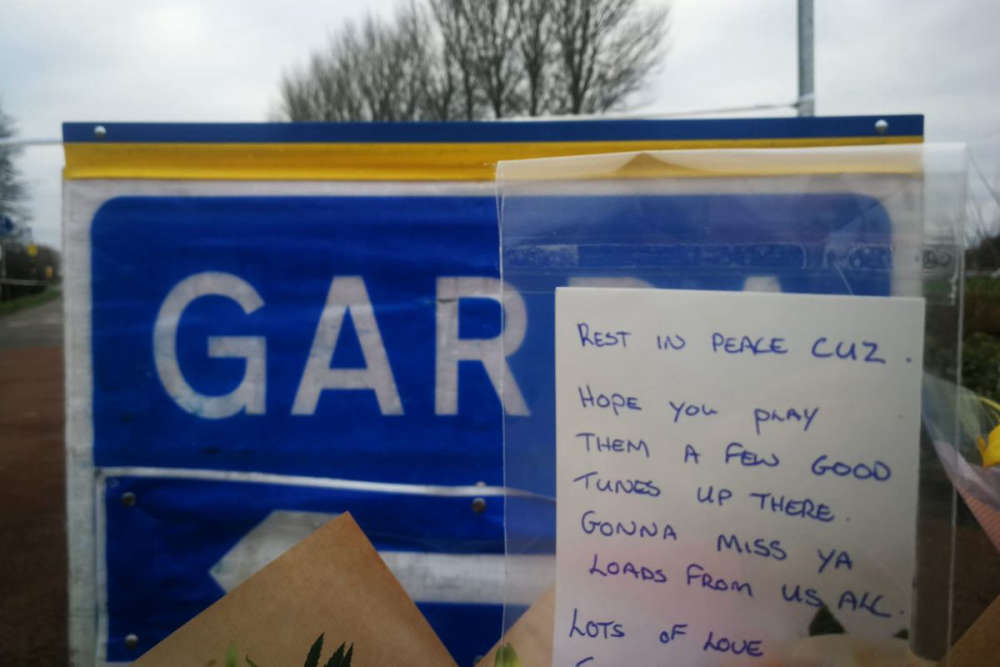 GAR
REST IN PEACE CUZ.
HOPE YOU PLAY
THEM A FEW GOOD
TUNES UP THERE.
GONNA MISS YA
LOADS FROM US ALL.
LOTS OF LOVE